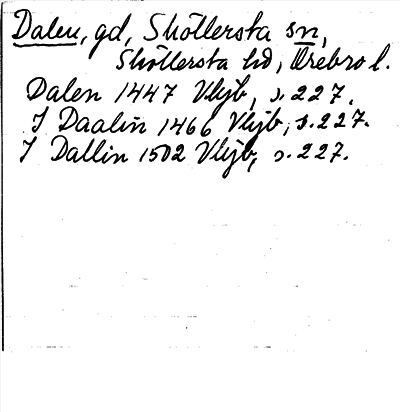 Dalen, gd, Sköllersta sn,
Sköllersta hd, Örebro l.
Dalen 1447 Vljb, s. 227.
I Daalin 1466 Vljb, s. 227.
I Dallin 1502 Vljb, s. 227.